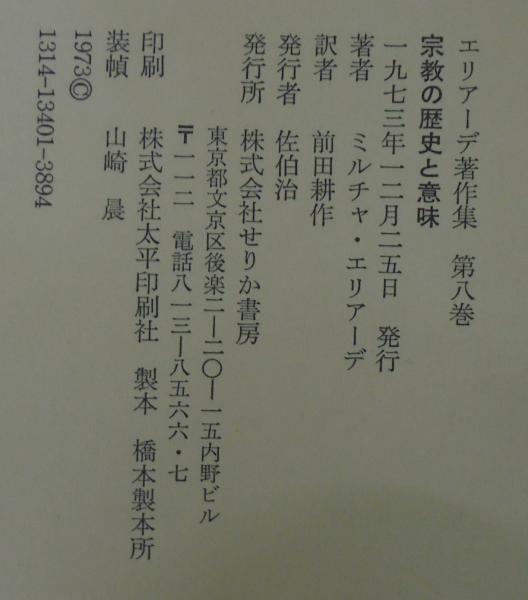 エリアーデ著作集　第八巻
宗教の歴史と意味
一九七三年一二月二五日　発行
著者　ミルチャ・エリアーデ
訳者　前田耕作
発行者　佐伯治
発行所　株式会社せりか書房
東京都文京区後楽二―二〇―一五内野ビル
〒一一二　電話八一三―八五六六・七
印刷　株式会社太平印刷社　製本　橋本製本所
装幀　山崎　晨
1973©
1314-13401-3894